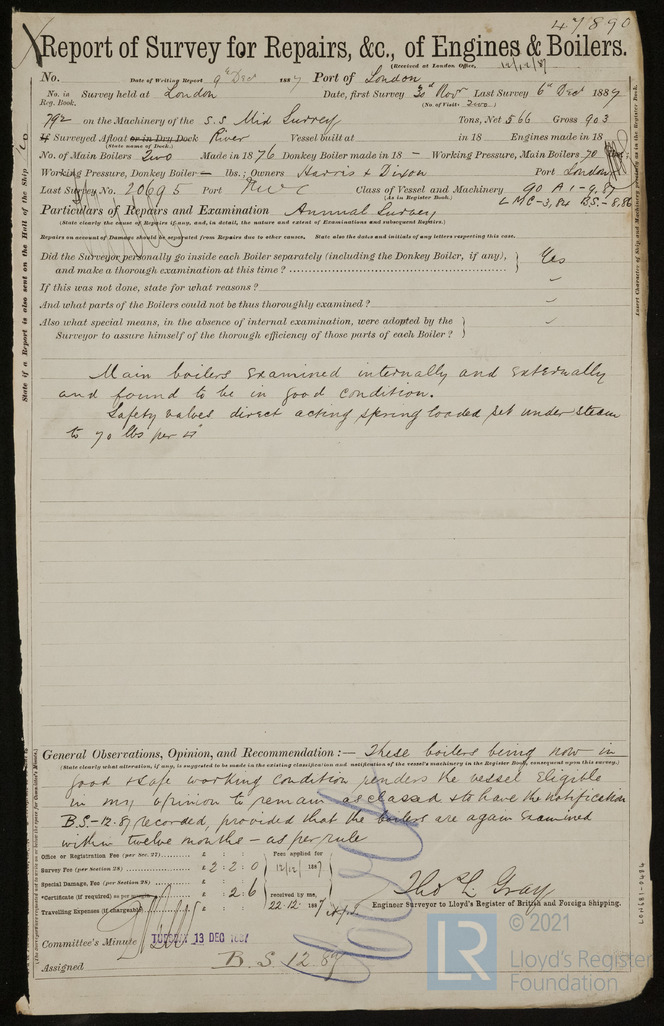 47890
Report of Survey for Repairs, &c., of Engines & Boilers.
(Received at London Office, 12/12/87
No. Date of Writing Report 9th Dec 1887 Port of London
No. in Survey held at London Date, first Survey 30th Novr Last Survey 6th Dect 1887
Reg. Book. (No. of Visits Two)
792 on the Machinery of the S.S. Mid Surrey Tons, Net 566 Gross 903
If Surveyed Afloat or in Dry Dock River Vessel built at in 18 Engines made in 18
(State name of Dock.)
No. of Main Boilers Two Made in 1876 Donkey Boiler made in 18 — Working Pressure, Main Boilers 70 lbs;
Working Pressure, Donkey Boiler — lbs.; Owners Harris & Dixon Port London
Last Survey No. 20695 Port Nwc Class of Vessel and Machinery 90 A1-9,87
(As in Register Book.) LMC-3,84 BS-8,86
Particulars of Repairs and Examination Annual Survey
(State clearly the cause of Repairs if any, and, in detail, the nature and extent of Examinations and subsequent Repairs.)
Repairs on account of Damage should be separated from Repairs due to other causes. State also the dates and initials of any letters respecting this case.
Did the Surveyor personally go inside each Boiler separately (including the Donkey Boiler, if any), and make a thorough examination at this time? Yes
If this was not done, state for what reasons? —
And what parts of the Boilers could not be thus thoroughly examined? —
Also what special means, in the absence of internal examination, were adopted by the
Surveyor to assure himself of the thorough efficiency of those parts of each Boiler?
Main boilers examined internally and externally
and found to be in good condition.
Safety valves direct acting spring loaded set under steam
to 70 lbs per □"
General Observations, Opinion, and Recommendation:— These boilers being now in
(State clearly what alteration, if any, is suggested to be made in the existing classification and notification of the vessel's machinery in the Register Book, consequent upon this survey.)
good & safe working condition renders the vessel eligible
in my opinion to remain as classed & to have the notification
B.S.-12.87 recorded, provided that the boilers are again examined
within twelve months — as per rule
Office or Registration Fee (per Sec. 27) £ : : Fees applied for
Survey Fee (per Section 28) £ 2 : 2 : 0 12/12/1887
Special Damage, Fee (per Section 28) £ : :
*Certificate (if required) as per £ : 2 . 6 received by me,
Travelling Expenses (if chargeable) £ : : 22.12.1887
Thos L. Gray
Engineer Surveyor to Lloyd's Register of British and Foreign Shipping.
Committee's Minute TUESDAY 13 DEC 1887
Assigned B.S. 12.87
State if a Report is also sent on the Hull of the Ship
Insert Character of Ship and Machinery precisely as in the Register Book.
LR
© 2021
Lloyd's Register
Foundation